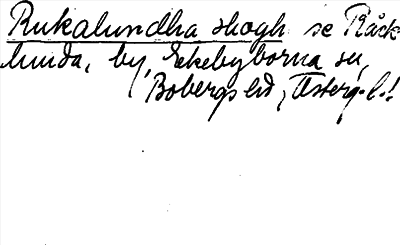 Rukalundha skogh se Råck
lunda, by, Ekebyborna sn,
Bobergs hd, Österg.l.!